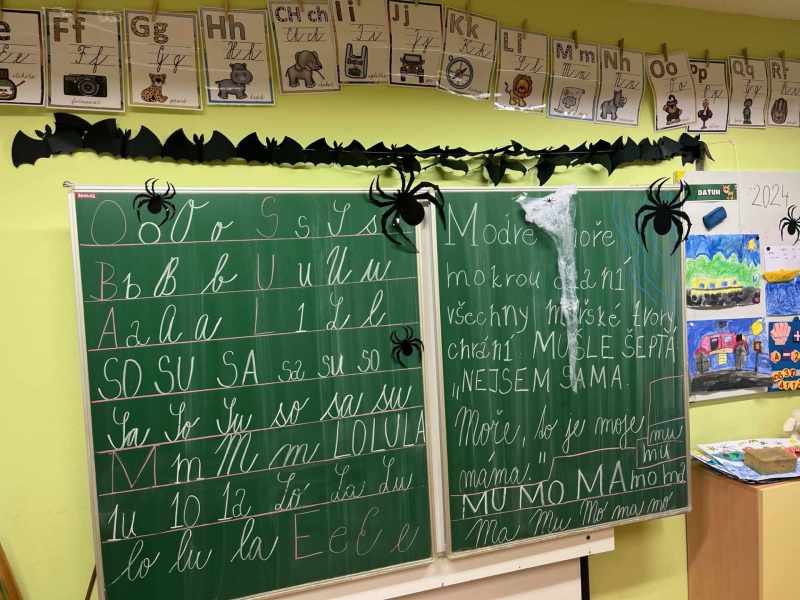 Ff
Gg
Hh
CH ch
Ii
Jj
Kk
Ll
Mm
Nn
Oo
Pp
Qq
DATUM
2024
O o O o S s S s
B b B b U u U u
A a A a L l L l
SO SU SA sa su so
Sa So Su so sa su
M m M m LOLULA
lu lo la Lo La Lu
lo lu la E e E e
Modré moře
mokrou dlaní
všechny mořské tvory
chrání. MUŠLE ŠEPTÁ
„NEJSEM SAMA.
Moře, to je moje
máma."
mu
mu
MU MO MA mo ma
Ma Mu Mo ma mo